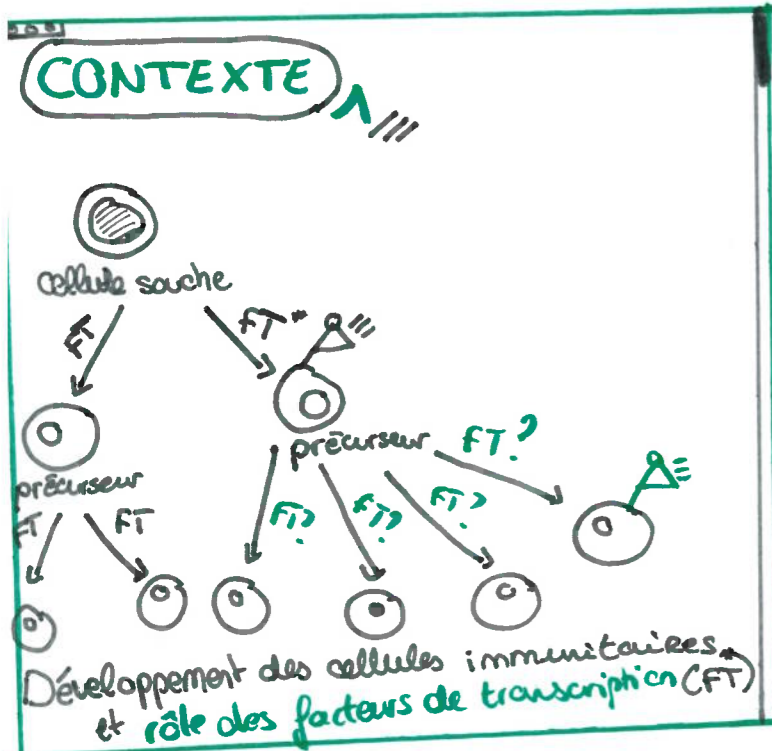 CONTEXTE
cellule souche
FT FT*
précurseur FT?
précurseur
FT FT FT? FT? FT?
Développement des cellules immunitaires
et rôle des facteurs de transcription (FT)*